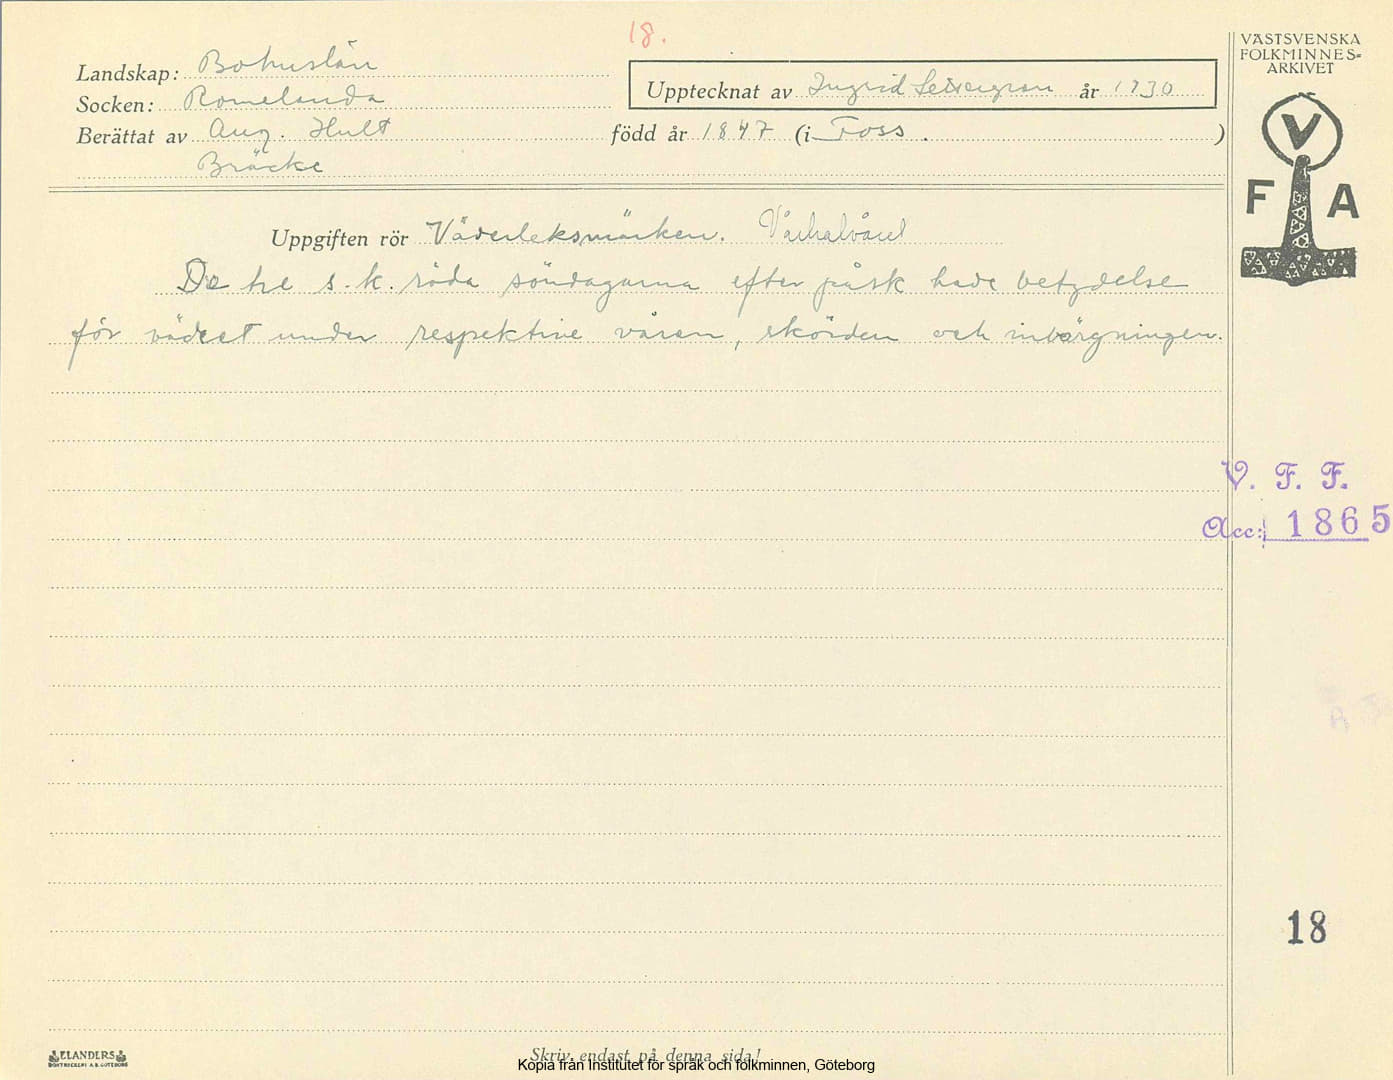 18.
Landskap: Bohuslän
Socken: Romelanda
Upptecknat av Ingrid år 1930
Berättat av Aug. Hult född år 1847 (i Foss. )
Bräcke
Uppgiften rör Väderleksmärken. Vårhalvåret
De tre s.k. röda söndagarna efter påsk hade betydelse
för vädret under respektive våren, skörden och inbärgningen.
VÄSTSVENSKA
FOLKMINNES=
ARKIVET
V
F A
V. F. F.
Acc: 1865
18
ELANDERS
BOKTRYCKERI A.B. GÖTEBORG
Skriv endast på denna sida!
Kopia från Institutet för språk och folkminnen, Göteborg